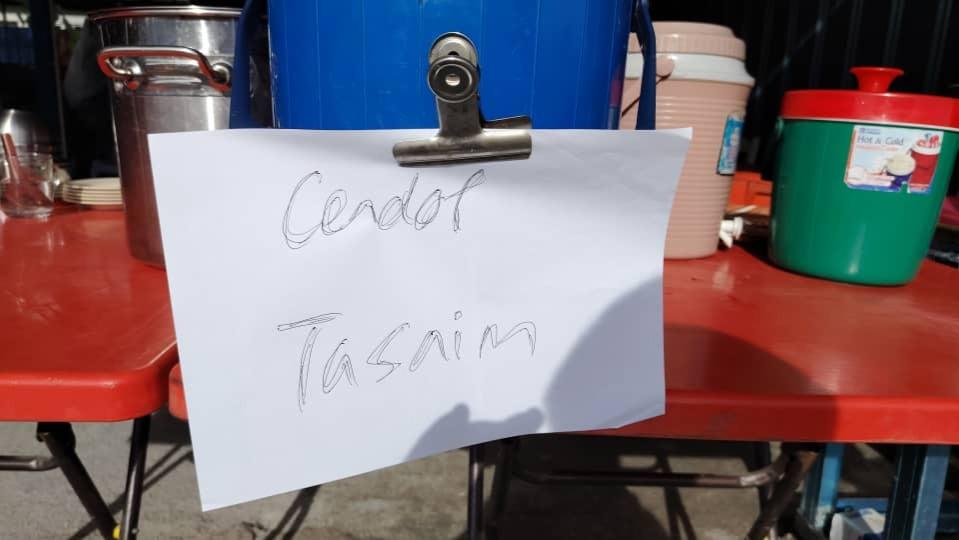 Cendol
Tasnim
Hot & Cold